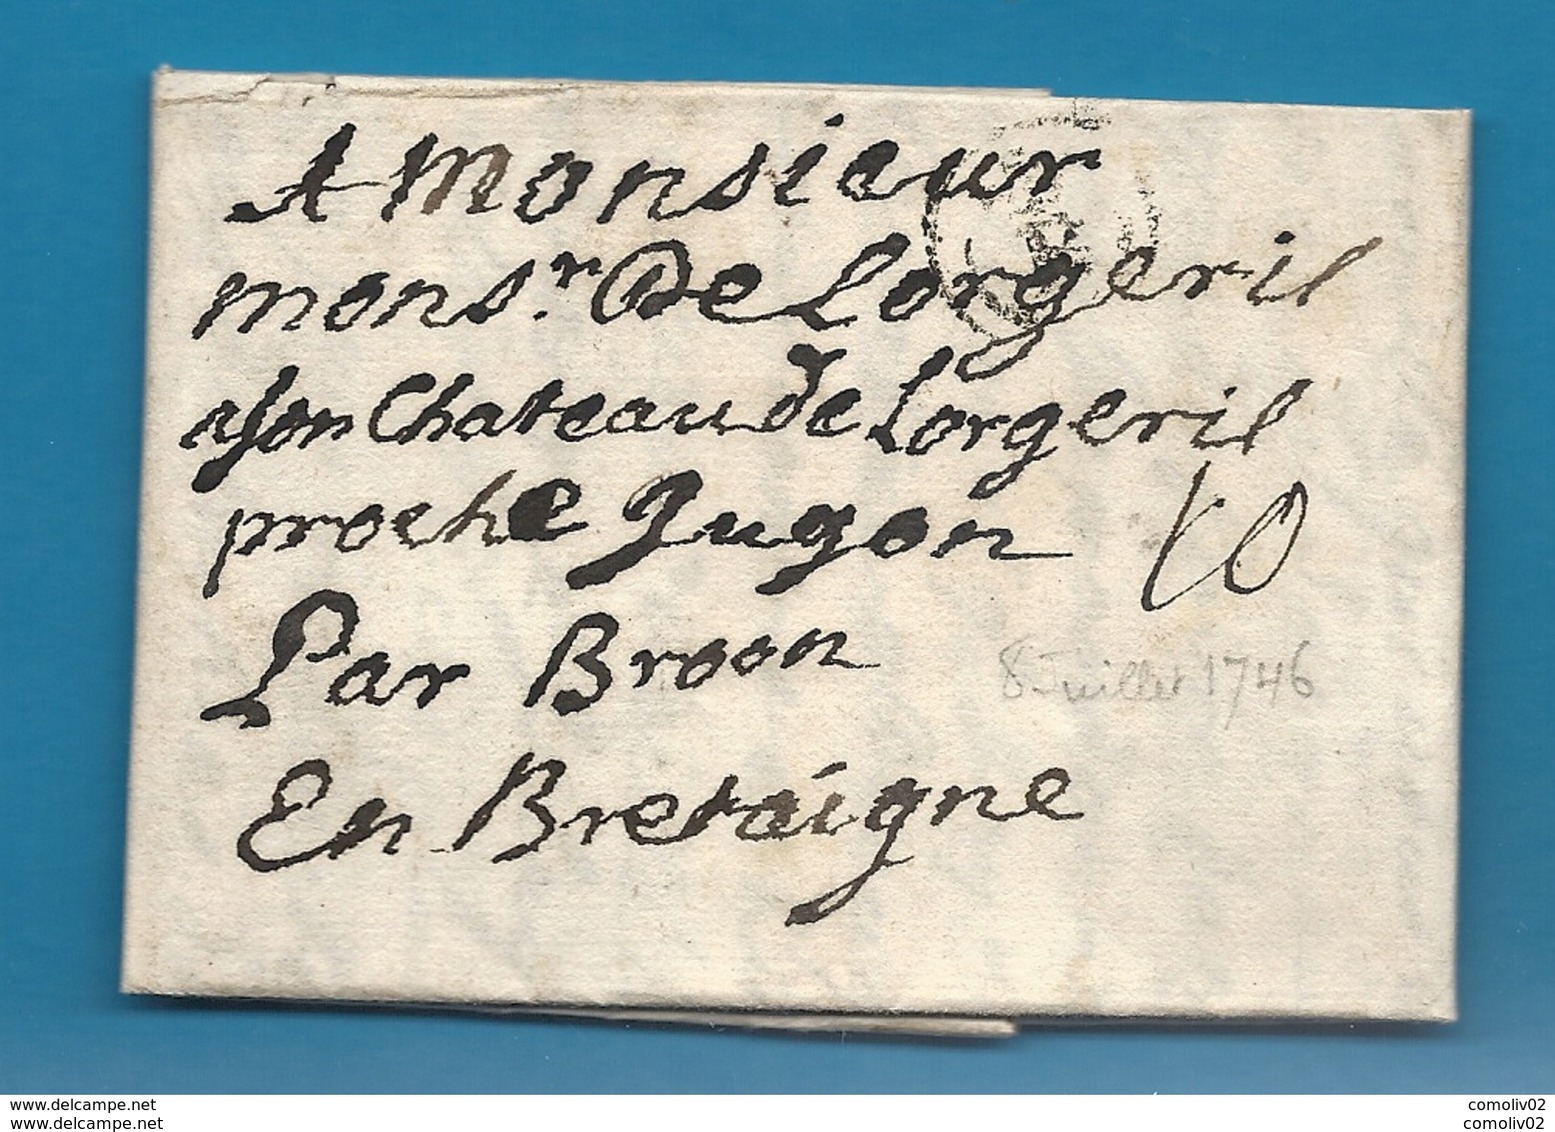 A Monsieur
mons.r De Lorgeril
a son Chateau de Lorgeril
proche Jugon
10
Par Broon
8 Juillet 1746
En Bretaigne
www.delcampe.net
comoliv02
www.delcampe.net
comoliv02